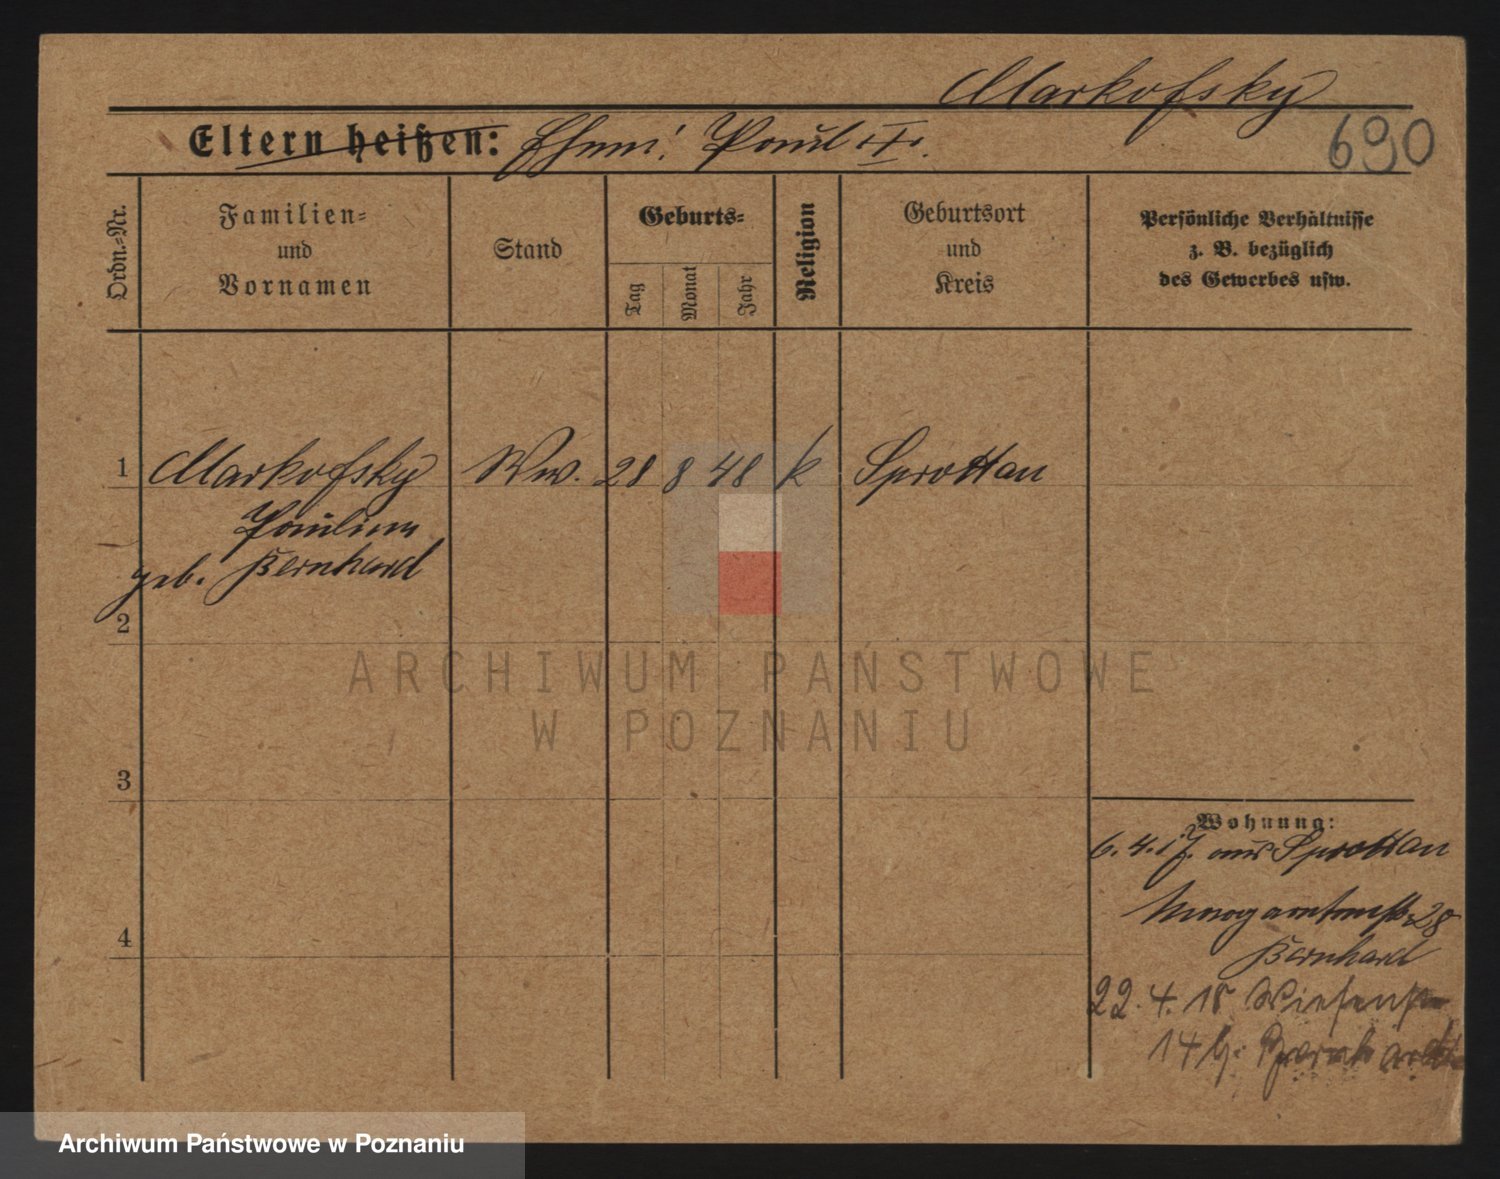 Markofsky
Eltern heißen: Ehem. Paul †.
690
Ordn.-Nr.
Familien-
und
Vornamen
Stand
Geburts-
Tag
Monat
Jahr
Religion
Geburtsort
und
Kreis
Persönliche Verhältnisse
z. B. bezüglich
des Gewerbes usw.
1 Markofsky Ww. 28 8 48 k Sprottau
Pauline
geb. Bernhard
2
3
4
Wohnung:
6.4.17. aus Sprottau
28
Bernhard
22.4.18 Wiesenstr
14 b. Bernhardt
ARCHIWUM PAŃSTWOWE
W POZNANIU
Archiwum Państwowe w Poznaniu